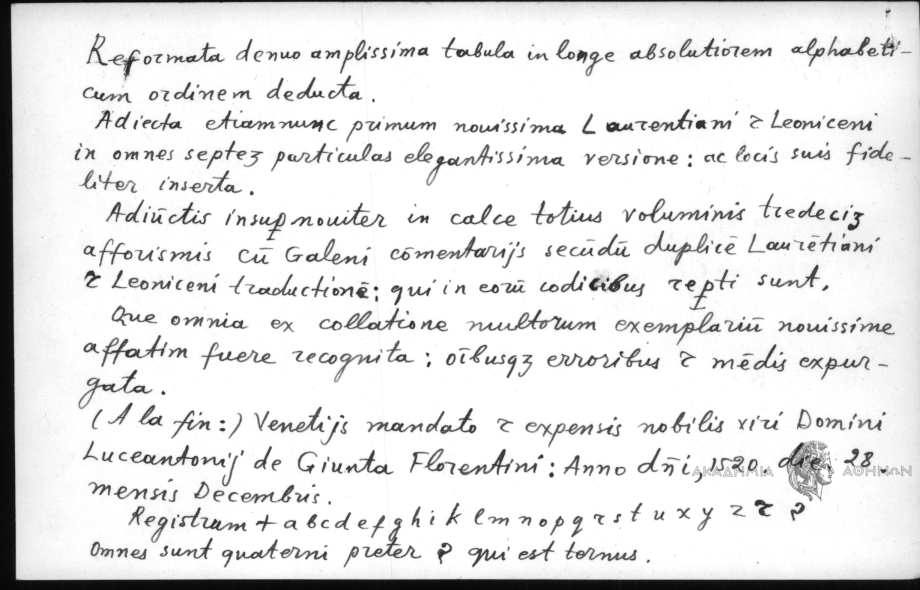 Reformata denuo amplissima tabula in longe absolutiorem alphabeti-
cum ordinem deducta.
Adiecta etiamnunc primum nouissima Laurentiani ⁊ Leoniceni
in omnes septeꝫ particulas elegantissima versione: ac locis suis fide-
liter inserta.
Adiūctis insuꝑ nouitēr in calce totius voluminis tredeciꝫ
afforismis cū Galeni cōmentarijs secūdū duplicē Laurētiani
⁊ Leoniceni traductionē: qui in eorū codicibus reꝑti sunt.
Que omnia ex collatione multorum exemplariū nouissime
affatim fuere recognita: oībusqꝫ erroribus ⁊ mēdis expur-
gata.
(A la fin:) Venetijs mandato ⁊ expensis nobilis viri Domini
Luceantonij de Giunta Florentini: Anno dn̄i, 1520. die. 28.
mensis Decembris.
Registrum + a b c d e f g h i k l m n o p q r s t u x y z ⁊ ꝯ
Omnes sunt quaterni preter ꝯ qui est ternus.
ΑΚΑΔΗΜΙΑ ΑΘΗΝΩΝ